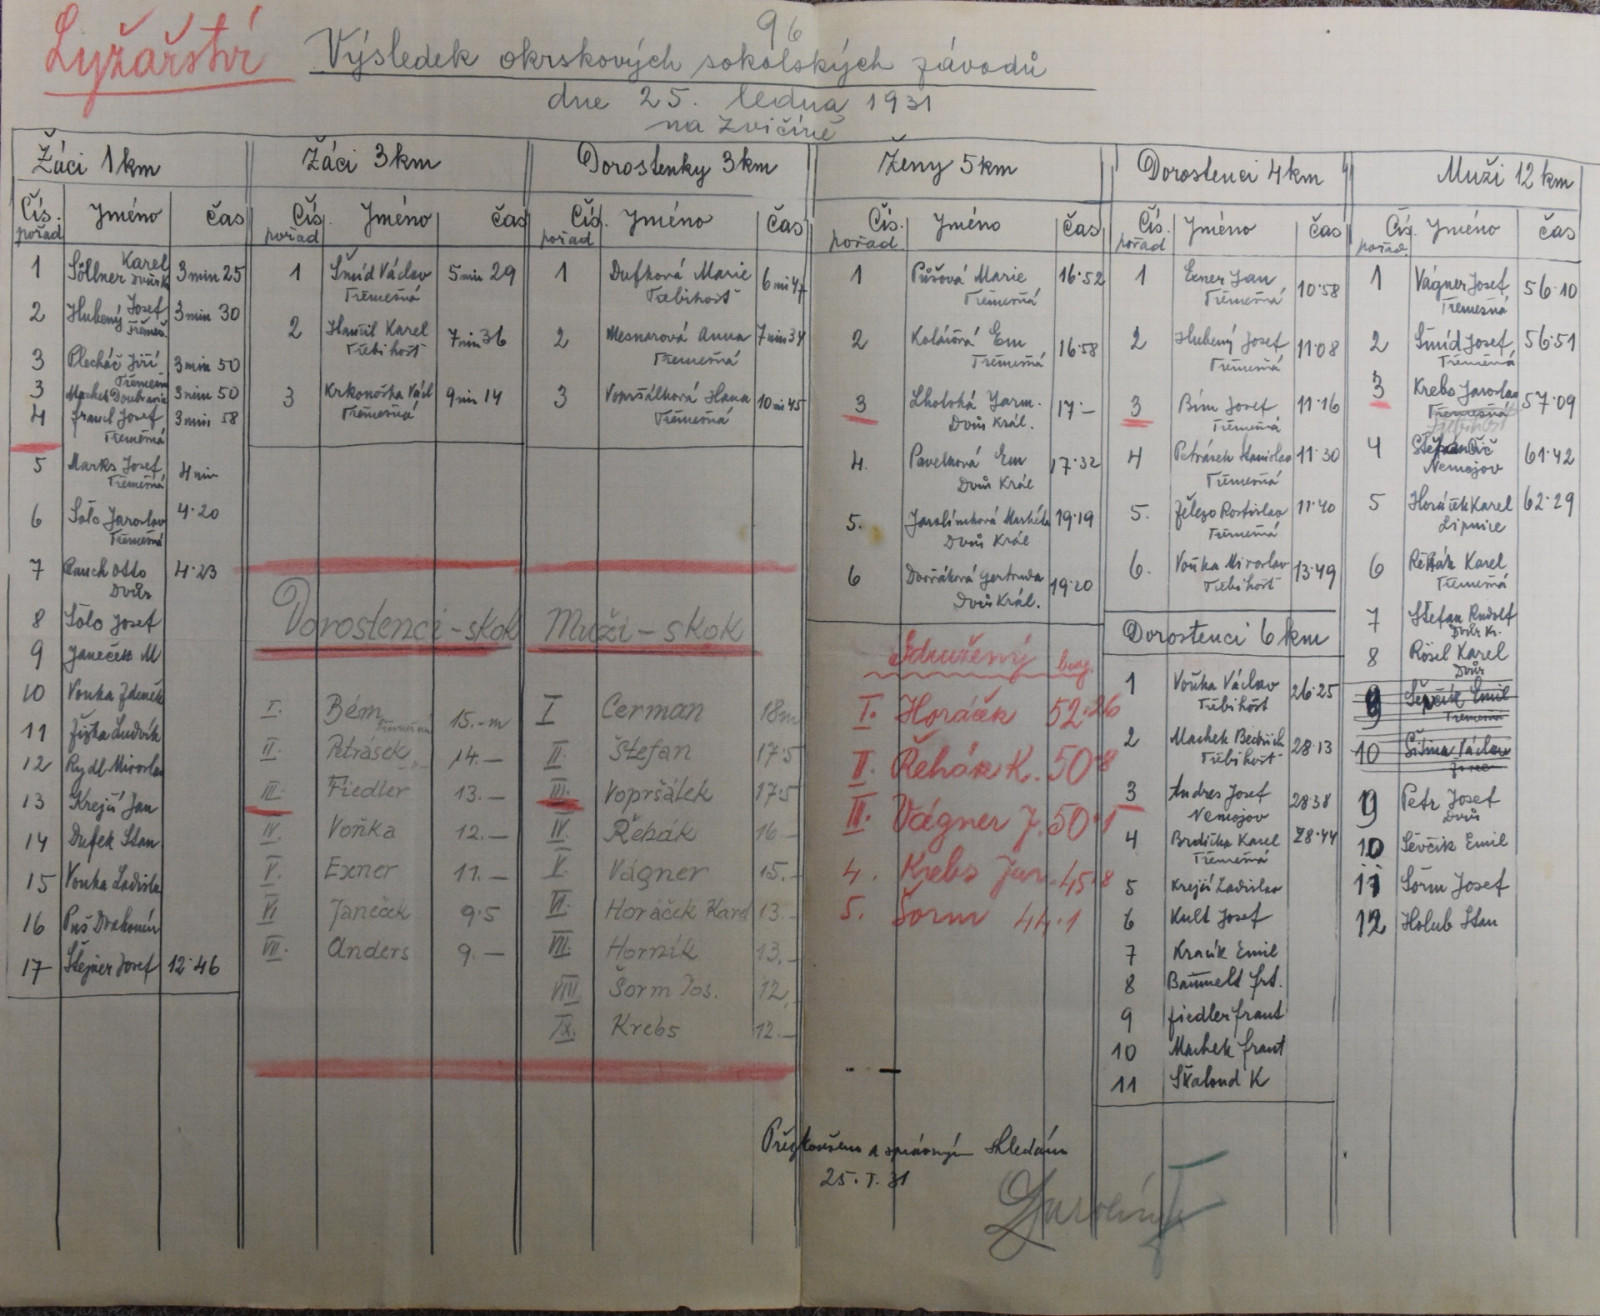 96
Lyžařství
Výsledek okrskových sokolských závodů
dne 25. ledna 1931
na Zvičině
Žáci 1 km
Čís. pořad Jméno čas
1 Söllner Karel 3 min 25
2 Hlubený Josef 3 min 30
Třemeš.
3 Plecháč Jiří 3 min 50
Třemešn
3 Machek 3 min 50
4 Josef 3 min 58
Třemešná
5 Marks Josef 4 min
Třemešná
6 Šolo Jaroslav 4·20
Třemešná
7 Rauch Otto 4·23
Dvůr
8 Šolo Josef
9 Janeček M
10 Voňka Zdeněk
11 Žižka Ludvík
12 Rydl Miroslav
13 Krejčí Jan
14 Dufek Stan
15 Vonka Ladisla
16
17 Josef 12·46
Žáci 3 km
Čís. pořad Jméno čas
1 Šmíd Václav 5 min 29
Třemešná
2 Hančil Karel 7 min 36
Třebihošť
3 Krkonoška Václ 9 min 14
Třemešná
Dorostenky 3 km
Čís. pořad Jméno čas
1 Dufková Marie 6 mi 47
Třebihošť
2 Mesnarová Anna 7 min 34
Třemešná
3 Vopršálková Hana 10 mi 45
Třemešná
Dorostenci - skok
I. Bém 15.- m
Třemešná
II. Petrásek 14. —
III. Fiedler 13. —
IV. Voňka 12. —
V. Exner 11. —
VI Janeček 9·5
VII. Anders 9. —
Muži - skok
I Cerman 18 m
II. Štefan 17·5
III. Vopršálek 17·5
IV. Řehák 16 —
V. Vágner 15. —
VI. Horáček Karel 13. —
VII. Horník 13. —
VIII. Šorm Jos. 12.
IX. Krebs 12. —
Ženy 5 km
Čís. pořad Jméno čas
1 Půšová Marie 16·52
Třemešná
2 Kolářová Em 16·58
Třemešná
3 Lhotská Jarm. 17·—
Dvůr Král.
4. Pavelková Em 17·32
Dvůr Král
5. Jarolímková Markéta 19·19
Dvůr Král
6 Dvořáková Gertruda 19·20
Dvůr Král.
Sdružený
I. Horáček 52·26
II. Řehák K. 50·8
III. Vágner J. 50·1
4. Krebs Jar. 45·8
5. Šorm 44·1
Dorostenci 4 km
Čís. pořad Jméno čas
1 Exner Jan 10·58
Třemešná
2 Hlubený Josef 11·08
Třemešná
3 Bím Josef 11·16
Třemešná
4 Petrásek Stanislav 11·30
Třemešná
5. Železo Rostislav 11·40
Třemešná
6. Voňka Miroslav 13·49
Třebihošť
Dorostenci 6 km
1 Voňka Václav 26·25
Třebihošť
2 Machek Bedřich 28·13
Třebihošť
3 Andres Josef 28·38
Nemojov
4 Brdička Karel 28·44
Třemešná
5 Krejčí Ladislav
6 Kult Josef
7 Kracík Emil
8 frt.
9 Fiedler Frant
10 Machek Frant
11 Škaloud K
Muži 12 km
Čís. pořad. Jméno čas
1 Vágner Josef 56·10
Třemesná
2 Šmíd Josef 56·51
Třemešná
3 Krebs Jaroslav 57·09
Třemešná
Třebihošť
4 Štěpán 61·42
Nemojov
5 Horáček Karel 62·29
Lipnice
6 Řehák Karel
Třemešná
7 Štefan Rudolf
Dvůr Kr.
8 Rösel Karel
Dvůr
9 Ševčík Emil
Třemešná
10 Václav
9 Petr Josef
Dvůr
10 Ševčík Emil
11 Šorm Josef
12 Holub Stan
Přezkoušeno a správným shledáno
25. I. 31